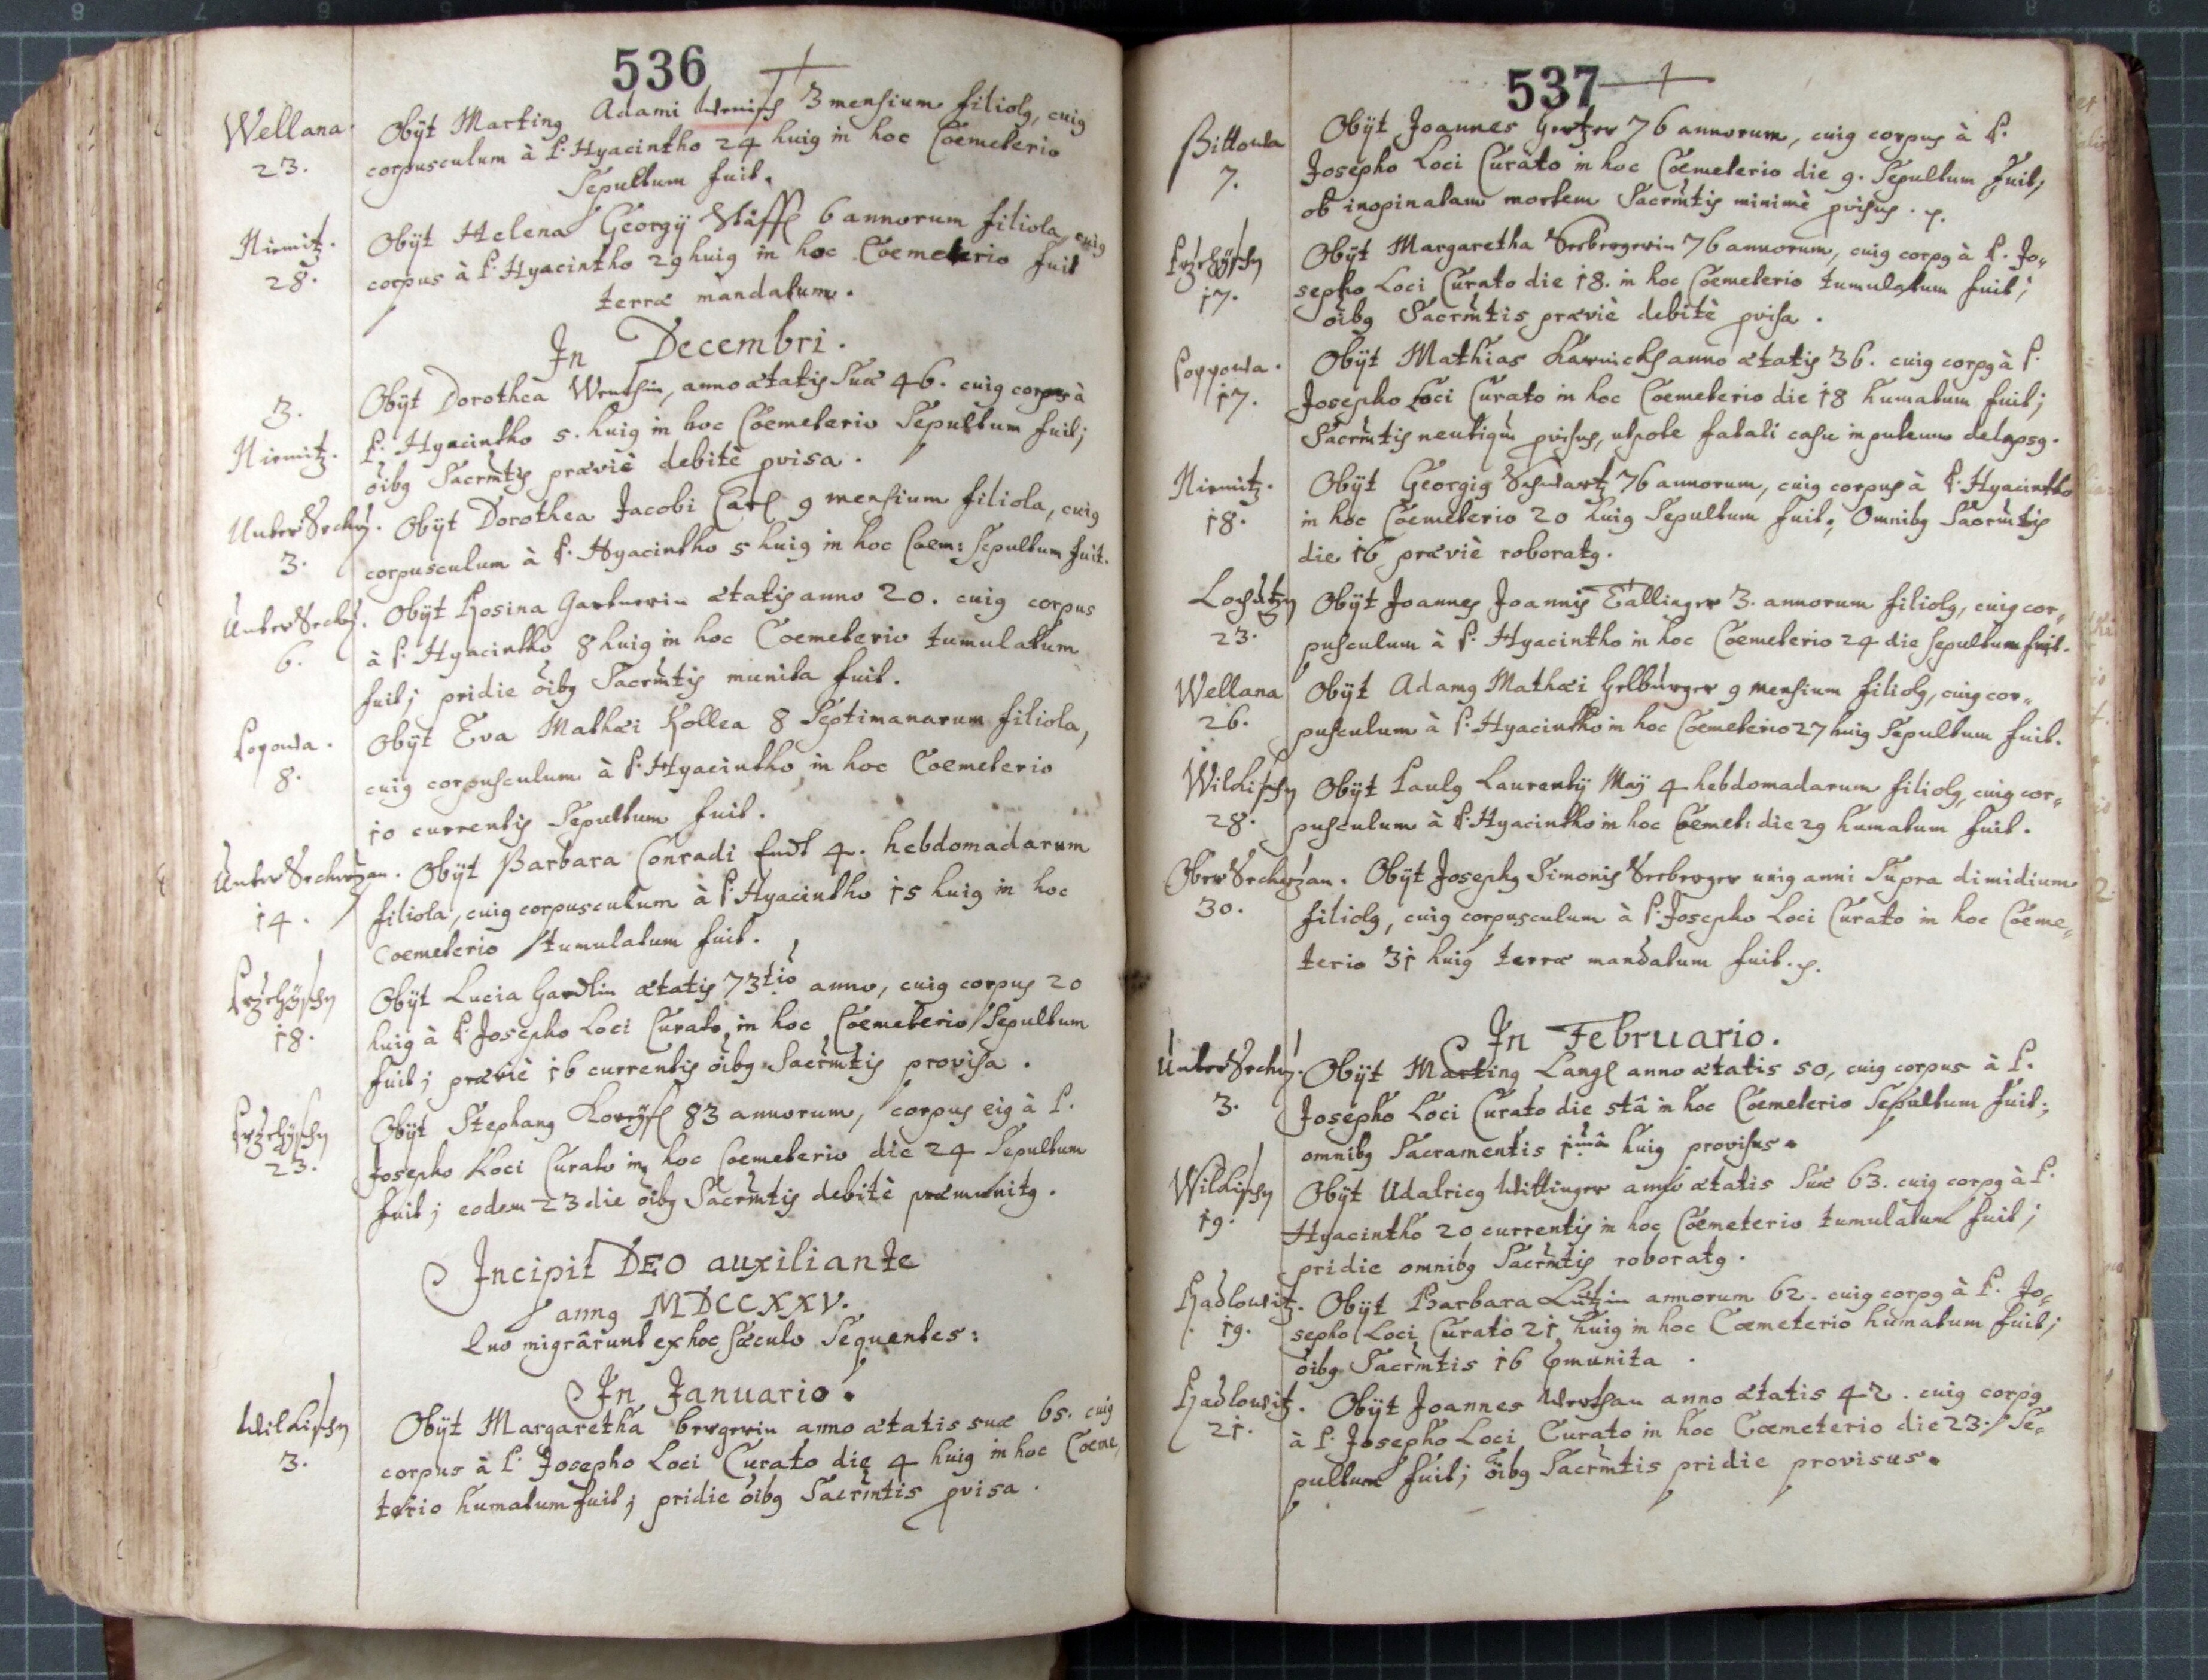 536
Wellana
23.
Obÿt Martinꝰ Adami Wenisch 3 mensium filiolꝰ, cuiꝰ
corpusculum à P. Hyacintho 24 huiꝰ in hoc Coemeterio
Sepultum fuit.
Niemitz.
28.
Obÿt Helena Georgÿ 6 annorum filiola, cuiꝰ
corpus à P. Hyacintho 29 huiꝰ in hoc Coemeterio fuit
terræ mandatum.
In Decembri.
3.
Niemitz.
Obÿt Dorothea anno ætatis Suæ 46. cuiꝰ corpus à
P. Hyacintho 5. huiꝰ in hoc Coemeterio Sepultum fuit;
oibꝰ Sacrmtis præviè debitè pvisa.
3.
Obÿt Dorothea Jacobi Carl 9 mensium filiola, cuiꝰ
corpusculum à P. Hyacintho 5 huiꝰ in hoc Coem: Sepultum fuit.
6.
Obÿt Rosina Gartnerin ætatis anno 20. cuiꝰ corpus
à P. Hyacintho 8 huiꝰ in hoc Coemeterio tumulatum
fuit; pridie oibꝰ Sacrmtis munita fuit.
Popowa.
8.
Obÿt Eva Mathæi Kollea 8 Septimanarum filiola,
cuiꝰ corpusculum à P. Hyacintho in hoc Coemeterio
10 currentis Sepultum fuit.
Unter Secherzan.
14.
Obÿt Barbara Conradi 4. hebdomadarum
filiola, cuiꝰ corpusculum à P. Hyacintho 15 huiꝰ in hoc
Coemeterio tumulatum fuit.
18.
Obÿt Lucia ætatis 73tio anno, cuiꝰ corpus 20
huiꝰ à P. Josepho Loci Curato in hoc Coemeterio Sepultum
fuit; præviè 16 currentis oibꝰ Sacrmtis provisa.
23.
Obÿt Stephanꝰ 83 annorum, corpus eiꝰ à P.
Josepho Loci Curato in hoc Coemeterio die 24 Sepultum
fuit; eodem 23 die oibꝰ Sacrmtis debitè præmunitꝰ.
Incipit DEO auxiliante
annꝰ MDCCXXV.
Quo migrârunt ex hoc sæculo Sequentes:
In Januario.
Wilkischn
3.
Obÿt Margaretha bergerin anno ætatis suæ 65. cuiꝰ
corpus à P. Josepho Loci Curato die 4 huiꝰ in hoc Coeme,
terio humatum fuit; pridie oibꝰ Sacrmtis pvisa.
537
Sittowa
7.
Obÿt Joannes Gertzer 76 annorum, cuiꝰ corpus à P.
Josepho Loci Curato in hoc Coemeterio die 9. Sepultum fuit;
ob inopinatam mortem Sacrmtis minimè pvisus. p.
17.
Obÿt Margaretha Seebergerin 76 annorum, cuiꝰ corpꝰ à P. Jo,,
sepho Loci Curato die 18. in hoc Coemeterio tumulatum fuit;
oibꝰ Sacrmtis præviè debitè pvisa.
Poppowa.
17.
Obÿt Mathias anno ætatis 36. cuiꝰ corpꝰ à P.
Josepho Loci Curato in hoc Coemeterio die 18 humatum fuit;
Sacrmtis neutiqm pvisus, utpote fatali casu in puteum delapsꝰ.
Niemitz.
18.
Obÿt Georgiꝰ Schwartz 76 annorum, cuiꝰ corpus à P. Hyacintho
in hoc Coemeterio 20 huiꝰ Sepultum fuit; Omnibꝰ Sacrmtis
die 16 præviè roboratꝰ.
Loschutzn
23.
Obÿt Joannes Joannis Tallinger 3. annorum filiolꝰ, cuiꝰ cor,,
pusculum à P. Hyacintho in hoc Coemeterio 24 die sepultum fuit.
Wellana
26.
Obÿt Adamꝰ Mathæi Gelburger 9 mensium filiolꝰ, cuiꝰ cor,,
pusculum à P. Hyacintho in hoc Coemeterio 27 huiꝰ Sepultum fuit.
Wilkischn
28.
Obÿt Paulꝰ Laurentÿ Maÿ 4 hebdomadarum filiolꝰ, cuiꝰ cor,,
pusculum à P. Hyacintho in hoc Coemet: die 29 humatum fuit.
Ober Secherzan.
30.
Obÿt Josephꝰ Simonis Seeberger uniꝰ anni Supra dimidium
filiolꝰ, cuiꝰ corpusculum à P. Josepho Loci Curato in hoc Coeme,,
terio 31 huiꝰ terræ mandatum fuit. p.
In Februario.
3.
Obÿt Martinꝰ Langl anno ætatis 50, cuiꝰ corpus à P.
Josepho Loci Curato die 5tâ in hoc Coemeterio Sepultum fuit;
omnibꝰ Sacramentis 1mâ huiꝰ provisus.
Wilkischn
19.
Obÿt Udalricꝰ Wittinger anno ætatis Suæ 63. cuiꝰ corpꝰ à P.
Hyacintho 20 currentis in hoc Coemeterio tumulatum fuit;
pridie omnibꝰ Sacrmtis roboratꝰ.
Radlowitz.
19.
Obÿt Barbara Lutzin annorum 62. cuiꝰ corpꝰ à P. Jo,,
sepho Loci Curato 21 huiꝰ in hoc Coemeterio humatum fuit;
oibꝰ Sacrmtis 16 pmunita.
Radlowitz.
21.
Obÿt Joannes anno ætatis 42. cuiꝰ corpꝰ
à P. Josepho Loci Curato in hoc Coemeterio die 23. Se,,
pultum fuit; oibꝰ Sacrmtis pridie provisus.